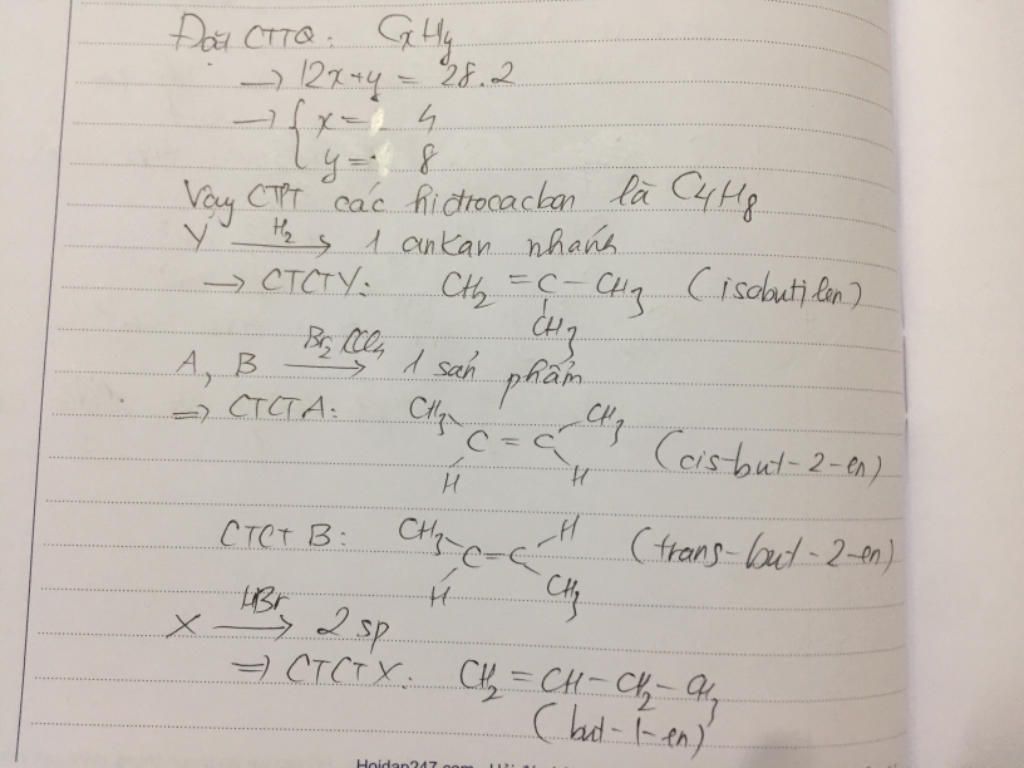 Đặt CTTQ: CxHy
→ 12x+y = 28.2
→ { x = 4
y = 8
Vậy CTPT các hiđrocacbon là C4H8
Y H2 → 1 ankan nhánh
→ CTCTY: CH2 = C – CH3 (isobutilen)
CH3
A, B Br2/CCl4 → 1 sản phẩm
⇒ CTCT A: CH3 CH3
C = C (cis-but-2-en)
H H
CTCT B: CH3 H (trans-but-2-en)
C = C
H CH3
X HBr → 2 sp
⇒ CTCT X: CH2 = CH – CH2 – CH3
(but-1-en)
Hoidap247.com